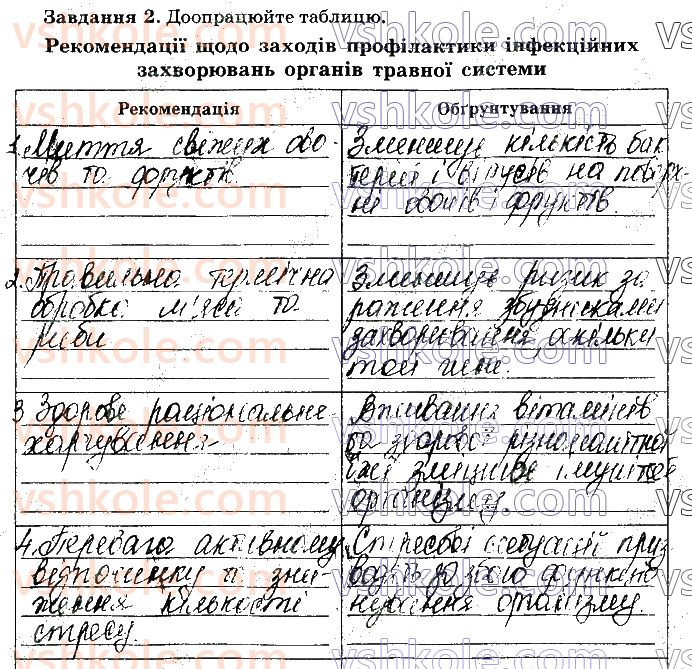 Завдання 2. Доопрацюйте таблицю.
Рекомендації щодо заходів профілактики інфекційних
захворювань органів травної системи
Рекомендація
Обґрунтування
1. Миття свіжих ово-
чів та фруктів.
Зменшує кількість бак-
терій і вірусів на поверх-
ні овочів і фруктів.
2. Правильна термічна
обробка м'яса та
риби
Зменшує ризик за
раження збудниками
захворювання, оскільки
той гине.
3 Здорове раціональне
харчування
Вживання вітамінів
та здорової різноманітної
їжі зміцнює імунітет
організму.
4. Перевага активному
відпочинку та зни
ження кількості
стресу.
Стресові ситуації приз
водять до збою функціо
нування організму.
vshkole.com